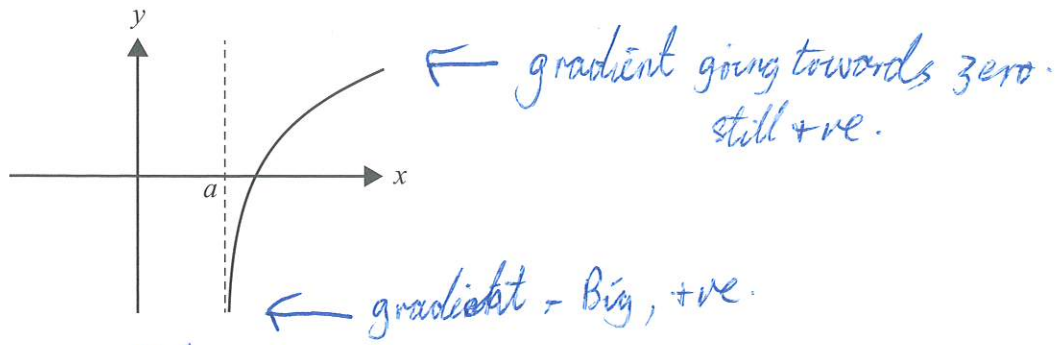 y
gradient going towards zero.
still +ve.
x
a
gradient - Big, +ve.